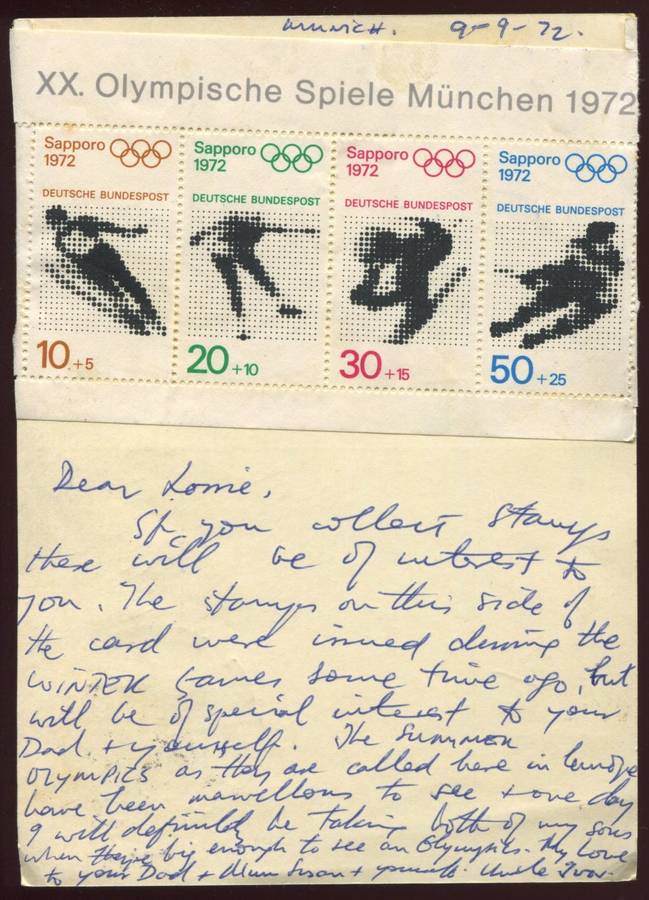 MUNICH. 9-9-72.
XX. Olympische Spiele München 1972
Sapporo 1972
DEUTSCHE BUNDESPOST
10 +5
Sapporo 1972
DEUTSCHE BUNDESPOST
20 +10
Sapporo 1972
DEUTSCHE BUNDESPOST
30 +15
Sapporo 1972
DEUTSCHE BUNDESPOST
50 +25
Dear
If you collect stamps
these will be of interest to
you. The stamps on this side of
the card were issued during the
WINTER Games some time ago, but
will be of special interest to your
Dad + yourself. The SUMMER
OLYMPICS as they are called here in Europe
have been marvellous to see + one day
I will definitely be taking both of my sons
when they're big enough to see an Olympics. My love
to your Dad + Mum Susan + yourself. Uncle Ivor.